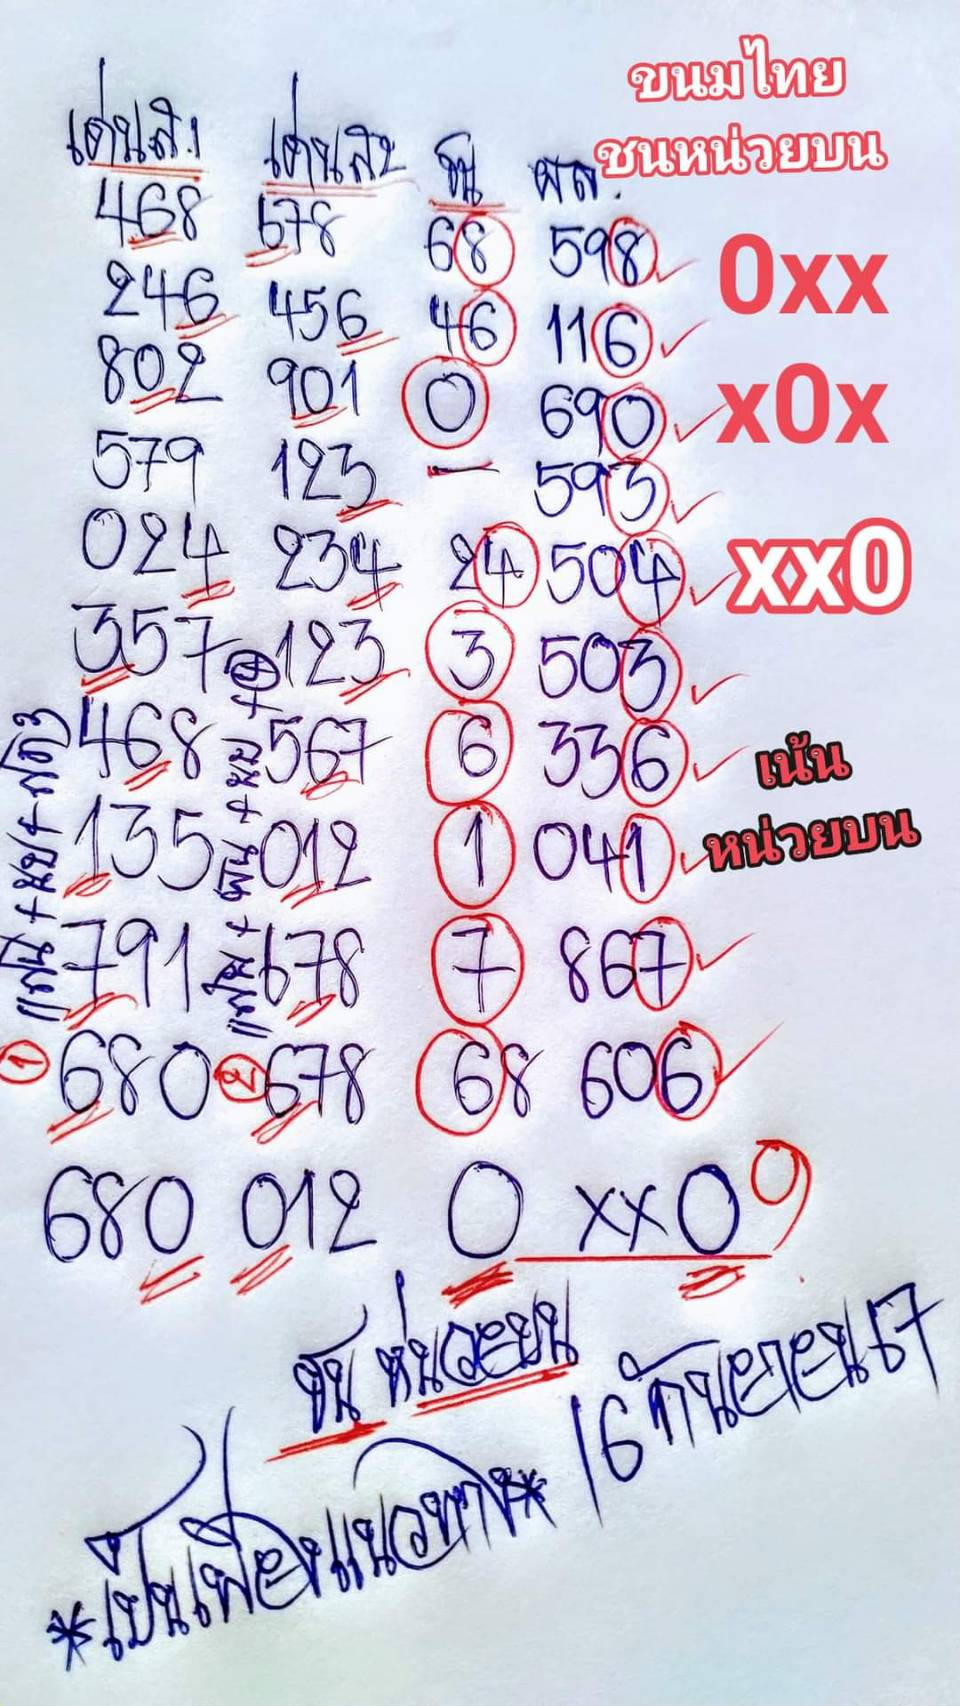 ขนมไทย
ชนหน่วยบน
เด่นสิบ เด่นสิบ ชน ผล.
468 678 68 598
246 456 46 116
802 901 0 690
579 123 — 593
024 234 24 504
357 123 3 503
468 567 6 336
135 012 1 041
791 678 7 867
1 680 2 678 68 606
680 012 0 xx0 9
0xx
x0x
xx0
เน้น
หน่วยบน
ชน หน่วยบน
16 กันยายน 67
*เป็นเพียงแนวทาง*